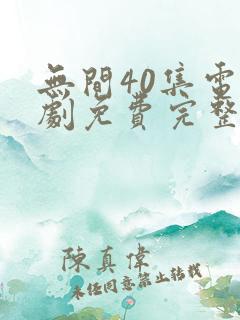 無間40集電
劇免費完整
陳真偉
未經同意禁止轉載